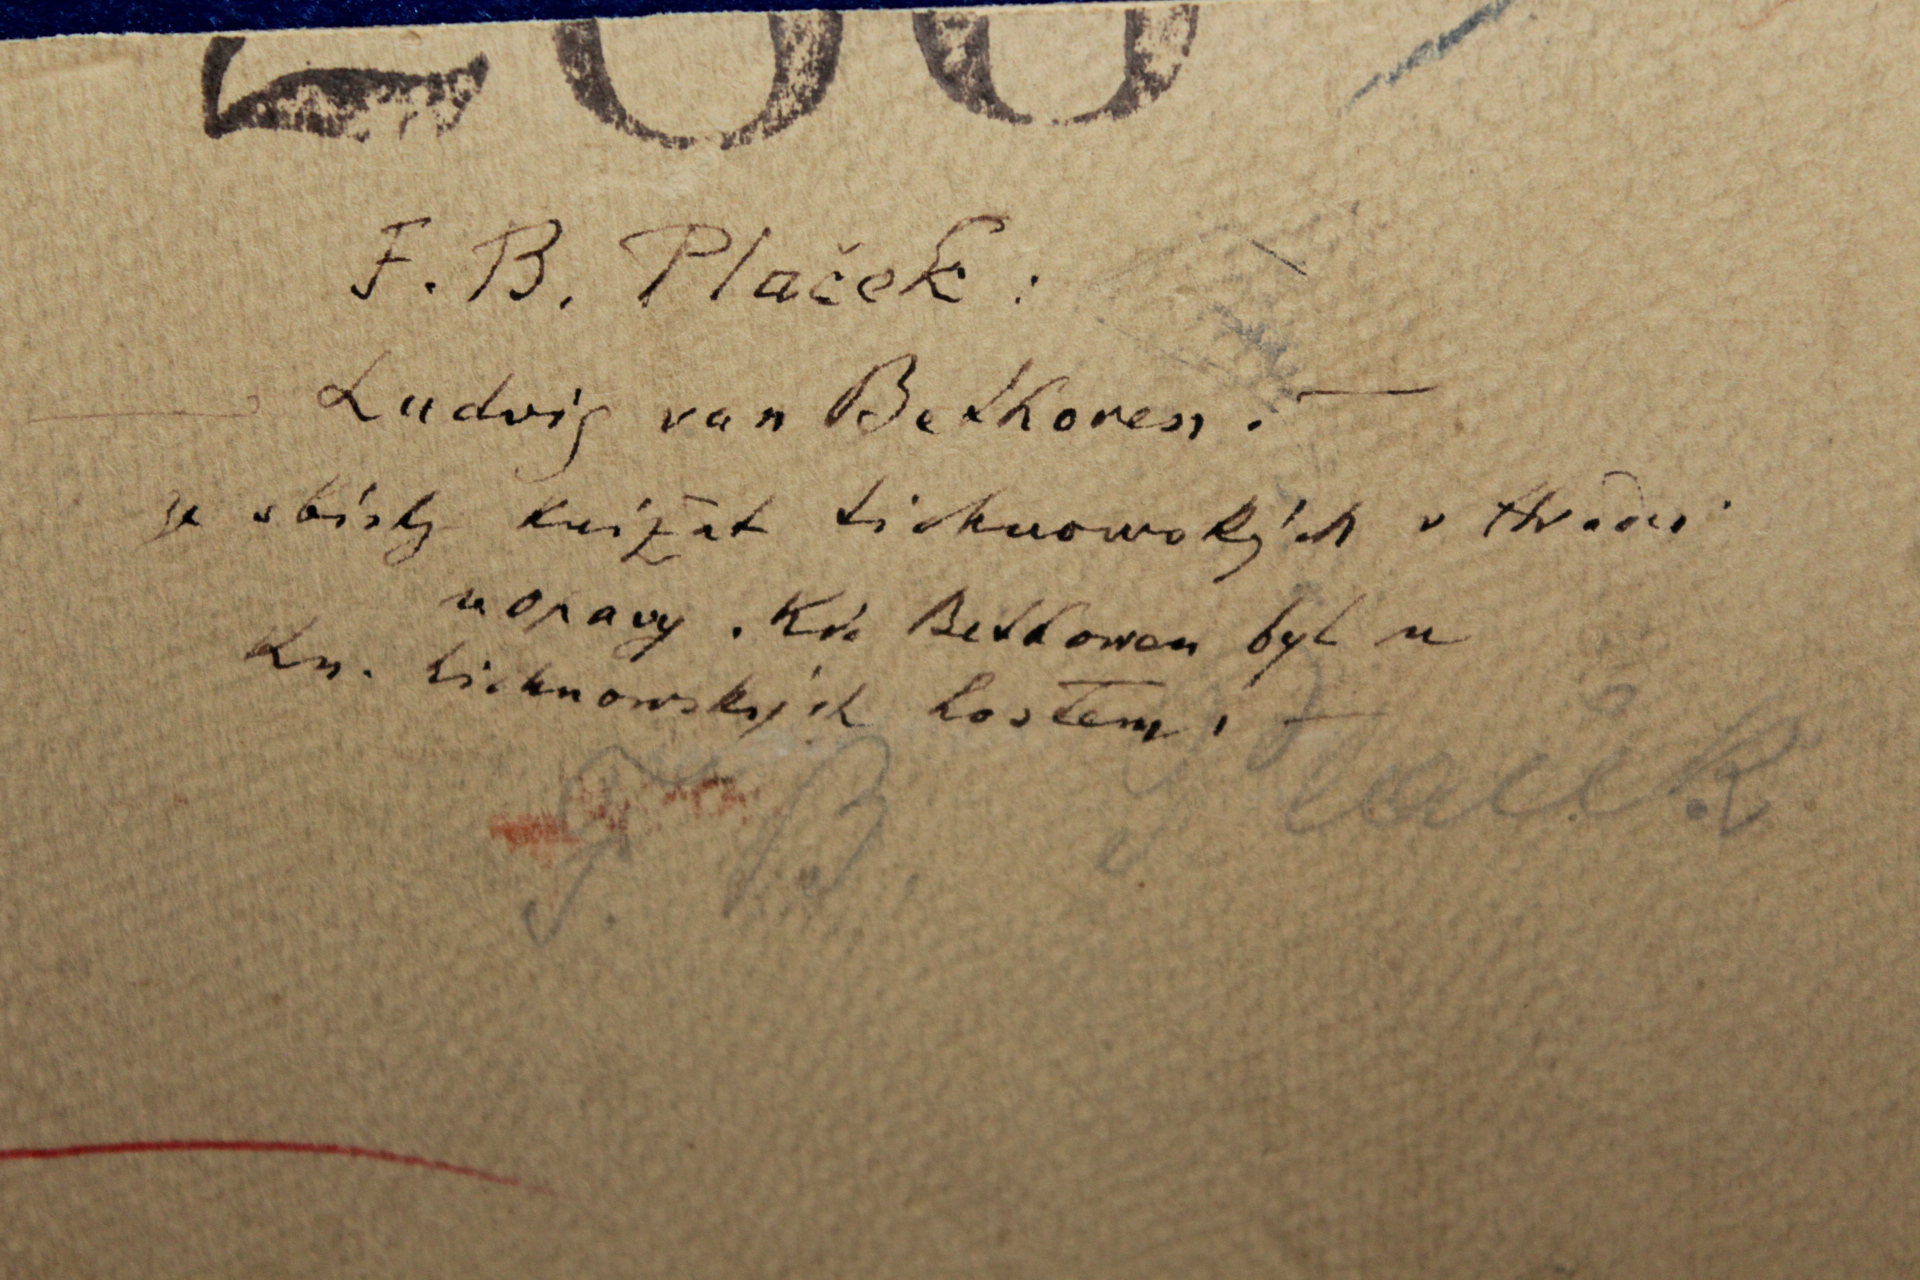 200
F. B. Plaček:
Ludvig van Bethoven. —
ze sbírky knížat Lichnowských v Hradci
u Opavy. Kde Bethowen byl u
Kn. Lichnowských hostem. —
F. B. Plaček